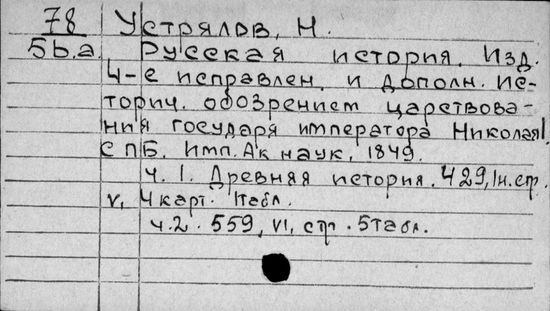 78 Устрялов, Н.
5b.a. Русская история. Изд.
4-е исправлен. и дополн. ис-
торич. обозрением царствова-
ния государя императора Николая I.
СПБ. Имп. Ак наук, 1849.
ч. 1. Древняя история. 429, 1н. стр.
v, 4 карт. 1 табл.
ч. 2. 559, VI, стр. 5 табл.